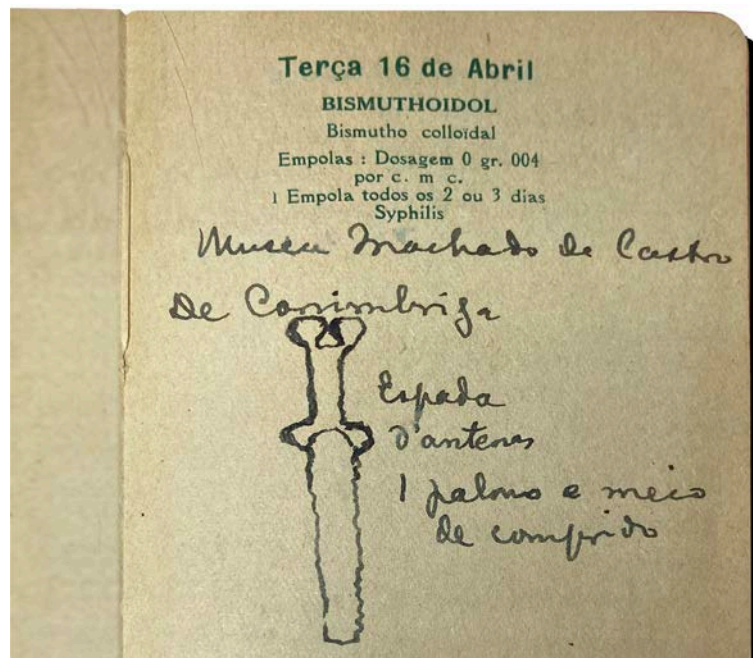 Terça 16 de Abril
BISMUTHOIDOL
Bismutho colloïdal
Empolas : Dosagem 0 gr. 004
por c. m c.
1 Empola todos os 2 ou 3 dias
Syphilis
Museu Machado de Castro
De Conimbriga
Espada
d'antenas
1 palmo e meio
de comprido